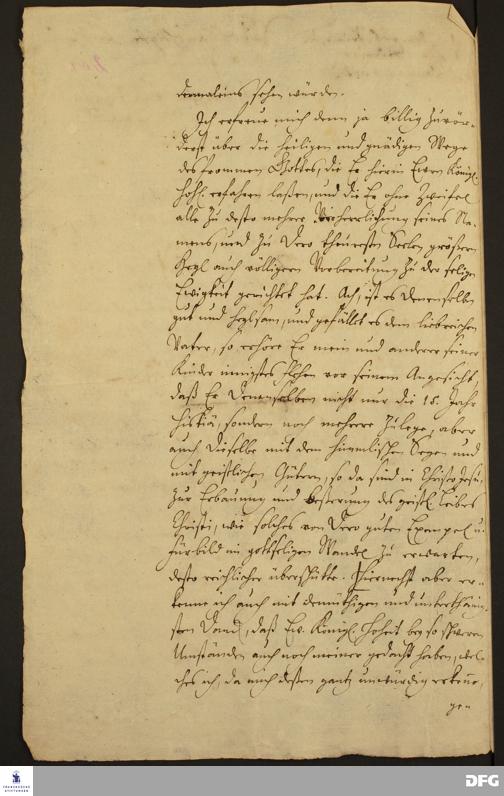 dermaleins sehen würden.
Ich erfreue mich denn ja billig zuvör-
derst über die heiligen und gnädigen Wege
des frommen Gottes, die Er hierin Ewre Königl.
Hoh: erfahren laßen, und die Er ohne Zweifel
alle zu desto mehrer Verherrlichung seines Na-
mens, und zu Dero theuresten Seelen größern
Heyl auch völligern Vorbereitung zu der seligen
Ewigkeit gerichtet hat. Ach, ist es Denenselben
gut und heylsam, und gefället es dem liebreichen
Vater, so erhöre Er mein und anderer seiner
Kinder innigstes Flehen vor seinem Angesicht,
daß Er Denenselben nicht nur die 15. Jahr
Hiskiä, sondern noch mehrere zulege, aber
auch Dieselbe mit dem himmlischen Segen und
mit geistlichen Gütern, so da sind in Christo Jesu,
zur Erbauung und Beßerung des geistl. Leibes
Christi, wie solches von Dero guten Exempel u.
fürbild im gottseligen Wandel zu erwarten,
desto reichlicher überschütte. Hiernechst aber er-
kenne ich auch mit demüthigen und unterthänig-
sten Danck, daß Ew. Königl. Hoheit bey so schweren
Umständen auch noch meiner gedacht haben, wel-
ches ich, da mich deßen gantz unwürdig erkenne,
ge-
FRANCKESCHE STIFTUNGEN
DFG